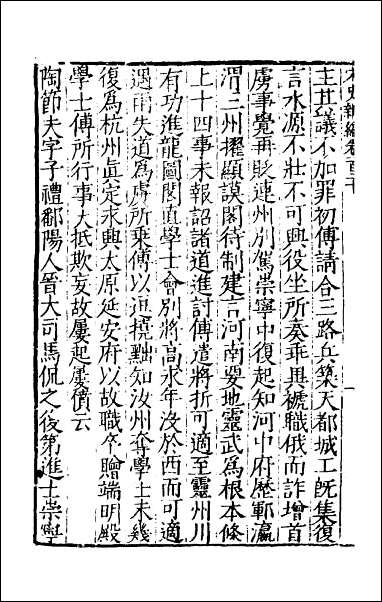 宋史新編卷百十
主其議不加罪初傅請合三路兵築天都城工旣集復
言水源不壯不可興役坐所奏乖異褫職俄而詐增首
虜事覺再貶連州別駕崇寧中復起知河中府歷鄆瀛
渭三州擢顯謨閣待制建言河南要地靈武爲根本條
上十四事未報詔諸道進討傅遣將折可適至靈州川
有功進龍圖閣直學士會別將高永年沒於西而可適
遇雨失道爲虜所乘傅以逗撓黜知汝州奪學士未幾
復爲杭州眞定永興太原延安府以故職卒贈端明殿
學士傅所行事大抵欺妄故屢起屢僨云
陶節夫字子禮鄱陽人晉大司馬侃之後第進士崇寧